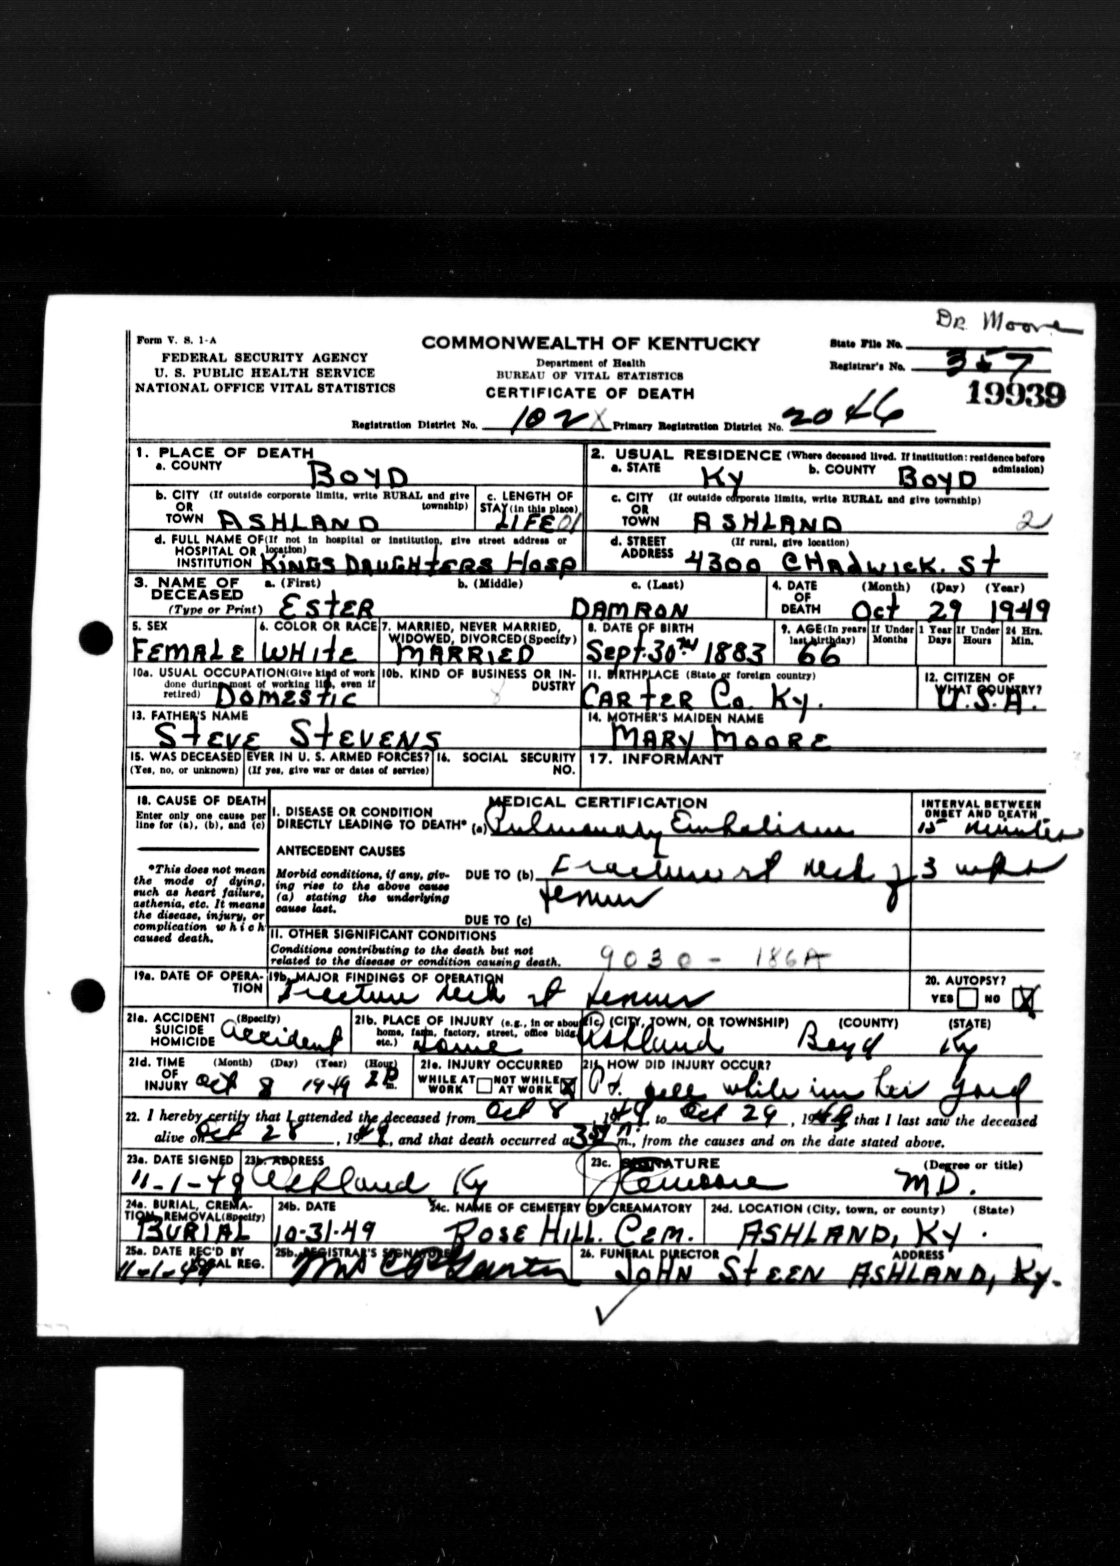 Dr. Moore
Form V. S. 1-A
COMMONWEALTH OF KENTUCKY
State File No.
FEDERAL SECURITY AGENCY
Department of Health
Registrar's No. 357
U. S. PUBLIC HEALTH SERVICE
BUREAU OF VITAL STATISTICS
NATIONAL OFFICE VITAL STATISTICS
CERTIFICATE OF DEATH
19939
Registration District No. 102 X Primary Registration District No. 2046
1. PLACE OF DEATH
a. COUNTY BOYD
2. USUAL RESIDENCE (Where deceased lived. If institution: residence before admission)
a. STATE Ky b. COUNTY BOYD
b. CITY (If outside corporate limits, write RURAL and give township)
OR TOWN ASHLAND
c. LENGTH OF STAY (in this place) LIFE 01
c. CITY (If outside corporate limits, write RURAL and give township)
OR TOWN ASHLAND 2
d. FULL NAME OF (If not in hospital or institution, give street address or location)
HOSPITAL OR INSTITUTION KINGS DAUGHTERS HOSP
d. STREET ADDRESS (If rural, give location)
4300 CHADWICK. St
3. NAME OF DECEASED (Type or Print) a. (First) b. (Middle) c. (Last)
ESTER DAMRON
4. DATE OF DEATH (Month) (Day) (Year)
Oct 29 1949
5. SEX FEMALE
6. COLOR OR RACE WHITE
7. MARRIED, NEVER MARRIED, WIDOWED, DIVORCED (Specify) MARRIED
8. DATE OF BIRTH Sept. 30TH 1883
9. AGE (In years last birthday) 66
If Under 1 Year Months Days
If Under 24 Hrs. Hours Min.
10a. USUAL OCCUPATION (Give kind of work done during most of working life, even if retired) DOMESTIC
10b. KIND OF BUSINESS OR INDUSTRY
11. BIRTHPLACE (State or foreign country) CARTER Co. Ky.
12. CITIZEN OF WHAT COUNTRY? U.S.A.
13. FATHER'S NAME STEVE STEVENS
14. MOTHER'S MAIDEN NAME MARY MOORE
15. WAS DECEASED EVER IN U. S. ARMED FORCES?
(Yes, no, or unknown) (If yes, give war or dates of service)
16. SOCIAL SECURITY NO.
17. INFORMANT
18. CAUSE OF DEATH
Enter only one cause per line for (a), (b), and (c)
*This does not mean the mode of dying, such as heart failure, asthenia, etc. It means the disease, injury, or complication which caused death.
MEDICAL CERTIFICATION
I. DISEASE OR CONDITION DIRECTLY LEADING TO DEATH* (a) Pulmonary Embolism
INTERVAL BETWEEN ONSET AND DEATH
15 minutes
ANTECEDENT CAUSES
Morbid conditions, if any, giving rise to the above cause (a) stating the underlying cause last.
DUE TO (b) Fracture rt neck of femur 3 wks
DUE TO (c)
II. OTHER SIGNIFICANT CONDITIONS
Conditions contributing to the death but not related to the disease or condition causing death.
9030 - 186A
19a. DATE OF OPERATION
19b. MAJOR FINDINGS OF OPERATION
Fracture neck rt femur
20. AUTOPSY?
YES NO X
21a. ACCIDENT SUICIDE HOMICIDE (Specify) Accident
21b. PLACE OF INJURY (e.g., in or about home, farm, factory, street, office bldg., etc.) Home
21c. (CITY, TOWN, OR TOWNSHIP) (COUNTY) (STATE)
Ashland Boyd Ky
21d. TIME OF INJURY (Month) (Day) (Year) (Hour)
Oct 8 1949 2 P m.
21e. INJURY OCCURRED
WHILE AT WORK NOT WHILE AT WORK X
21f. HOW DID INJURY OCCUR?
Pt. fell while in her yard
22. I hereby certify that I attended the deceased from Oct 8, 1949, to Oct 29, 1949, that I last saw the deceased
alive on Oct 28, 1949, and that death occurred at m., from the causes and on the date stated above.
23a. DATE SIGNED 11-1-49
23b. ADDRESS Ashland Ky
23c. SIGNATURE (Degree or title)
Moore M.D.
24a. BURIAL, CREMATION, REMOVAL (Specify) BURIAL
24b. DATE 10-31-49
24c. NAME OF CEMETERY OR CREAMATORY ROSE HILL. CEM.
24d. LOCATION (City, town, or county) (State)
ASHLAND, Ky.
25a. DATE REC'D BY LOCAL REG. 11-1-49
25b. REGISTRAR'S SIGNATURE
26. FUNERAL DIRECTOR ADDRESS
JOHN STEEN ASHLAND, Ky.